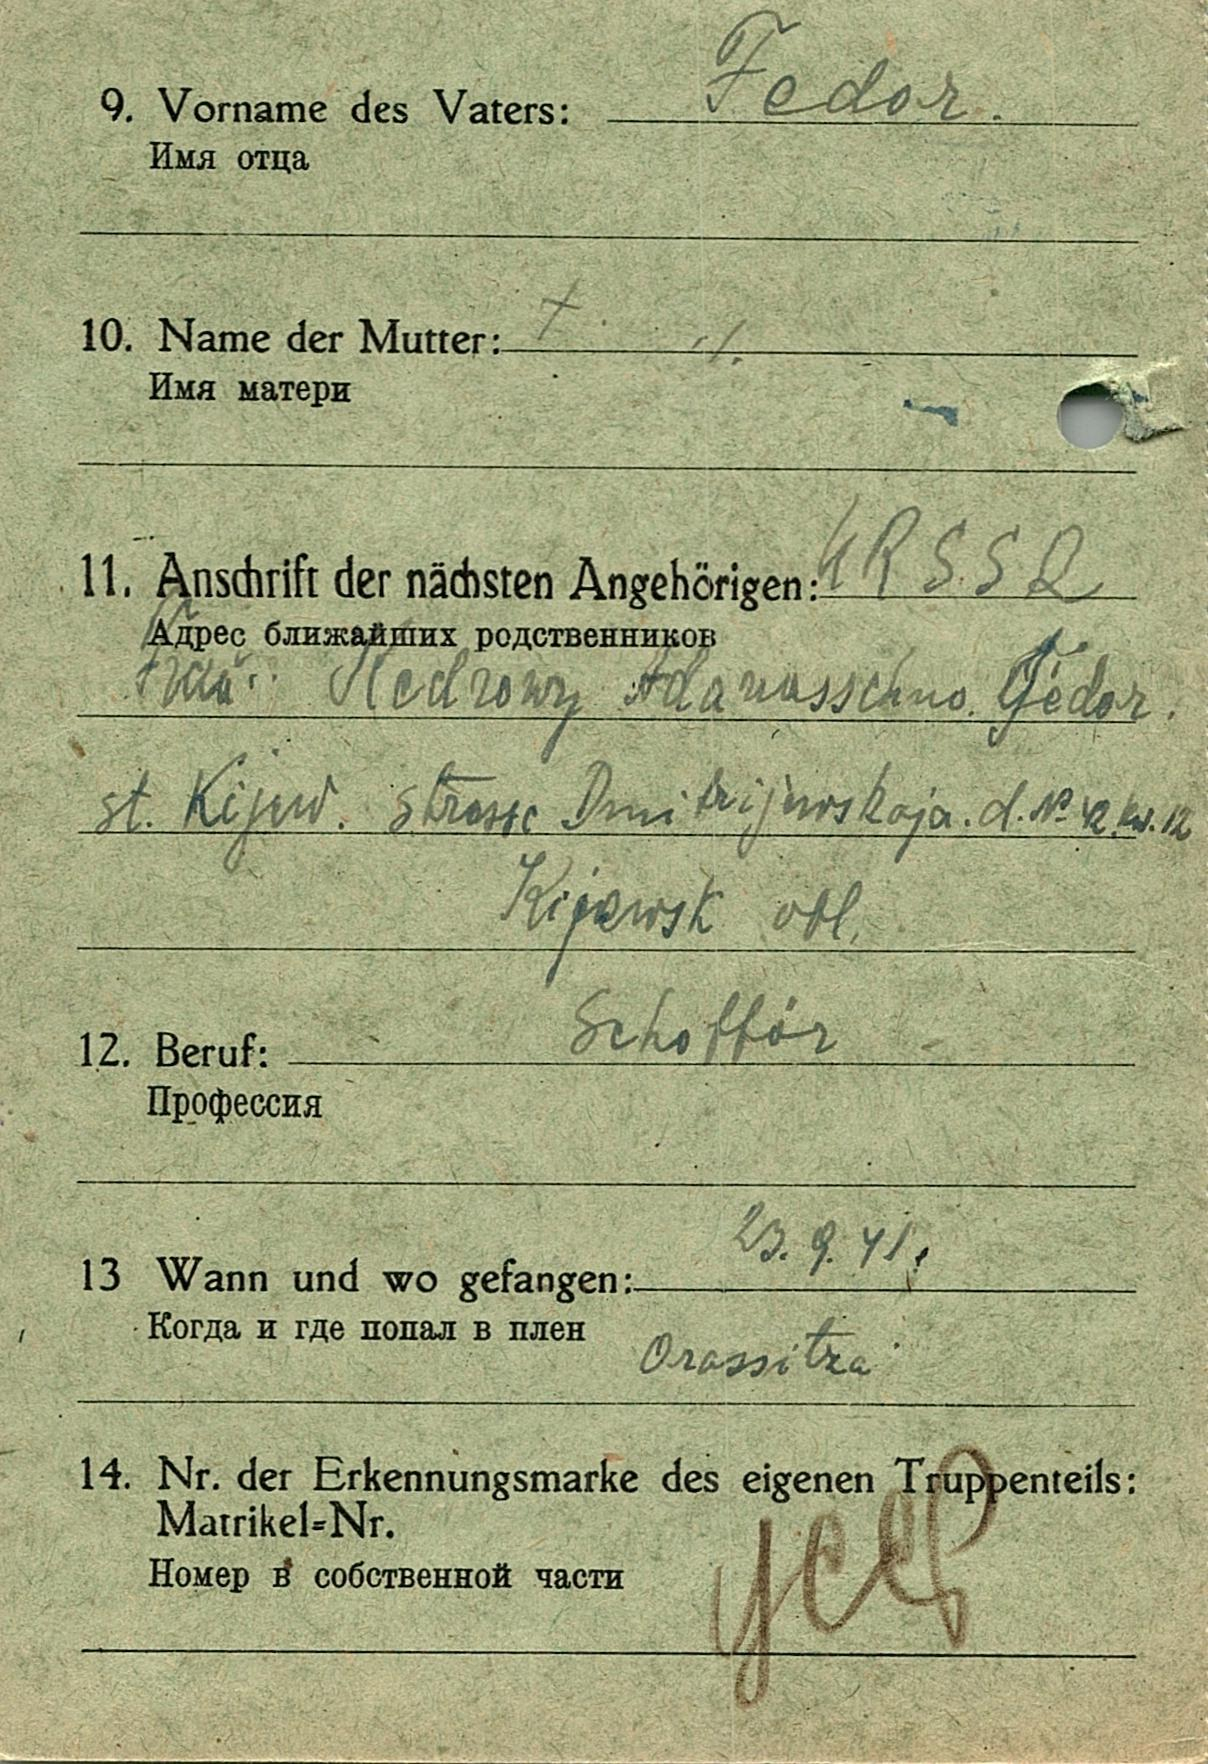 9. Vorname des Vaters: Fedor.
Имя отца
10. Name der Mutter: +
Имя матери
11. Anschrift der nächsten Angehörigen: URSSR
Адрес ближайших родственников
Fedor.
st. Kijew. strasse Dmitrijewskaja. d. № 42. kw. 12
Kijewsk obl.
12. Beruf: Schofför
Профессия
23. 9. 41.
13 Wann und wo gefangen:
Когда и где попал в плен Orassitza
14. Nr. der Erkennungsmarke des eigenen Truppenteils:
Matrikel=Nr.
Номер в собственной части
УССР